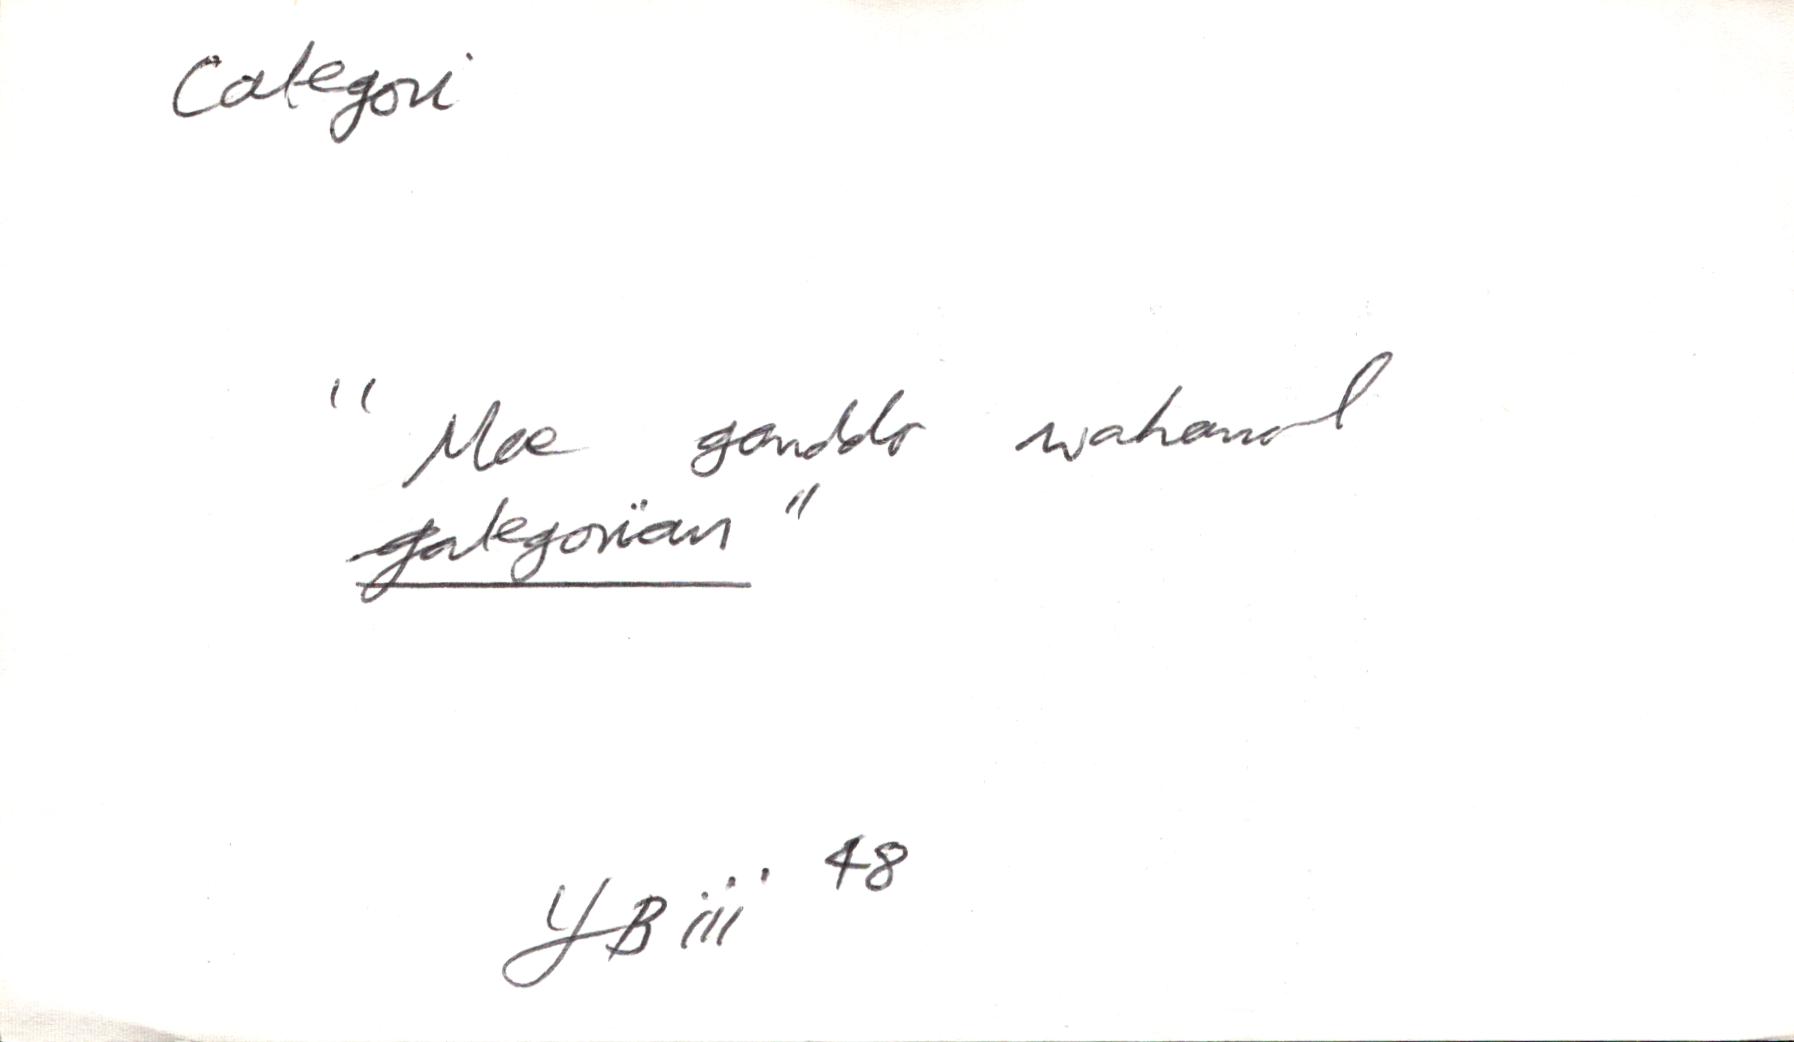 Categori
"Mae ganddo wahanol
gategorïau"
YB iii 48